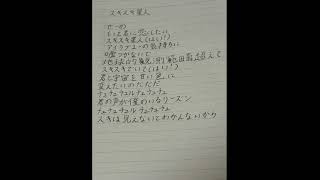 スキスキ星人
せーの
もいと君に恋したい
スキスキ星人(はい!)
アイラブユーの気持ちに
嘘つかないで
地球の観測範囲超えて
スキスキでいて(はい!)
君と宇宙を甘い色に
変えたいのただただ
チュチュチュルチュチュチュ
君の声が僕のいるリーズン
チュチュチュルチュチュチュ
スキは見えないとわかんないから